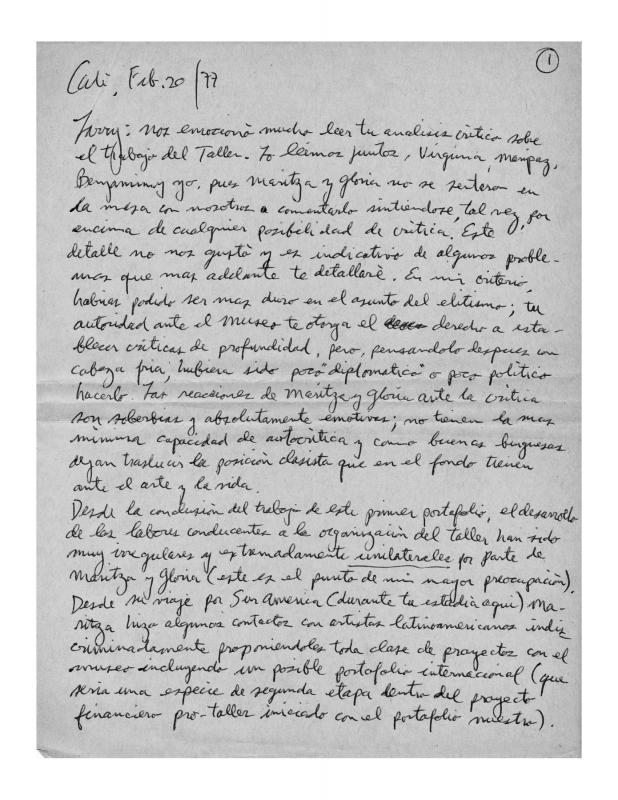 1
Cali, Feb. 20/77
Larry: nos emocionó mucho leer tu analisis critico sobre
el trabajo del Taller. Lo leimos juntos, Virginia, Maripaz,
Benjamin y yo, pues Maritza y Gloria no se sentaron en
la mesa con nosotros a comentarlo sintiéndose, tal vez, por
encima de cualquier posibilidad de critica. Este
detalle no nos gustó y es indicativo de algunos proble-
mas que mas adelante te detallaré. En mi criterio,
habrias podido ser mas duro en el asunto del elitismo; tu
autoridad ante el Museo te otorga el derecho a esta-
blecer criticas de profundidad, pero, pensandolo despues con
cabeza fria, hubiera sido poco "diplomatico" o poco politico
hacerlo. Las reacciones de Maritza y Gloria ante la critica
son soberbias y absolutamente emotivas; no tienen la mas
minima capacidad de autocritica y como buenas burguesas
dejan traslucir la posición clasista que en el fondo tienen
ante el arte y la vida.
Desde la conclusión del trabajo de este primer portafolio, el desarrollo
de las labores conducentes a la organización del taller han sido
muy irregulares y extremadamente unilaterales por parte de
Maritza y Gloria (este es el punto de mi mayor preocupación).
Desde su viaje por Sur America (durante tu estadia aqui) Ma-
ritza hizo algunos contactos con artistas latinoamericanos indis
criminadamente proponiendoles toda clase de proyectos con el
museo incluyendo un posible portafolio internacional (que
seria una especie de segunda etapa dentro del proyecto
financiero pro-taller iniciado con el portafolio nuestro).